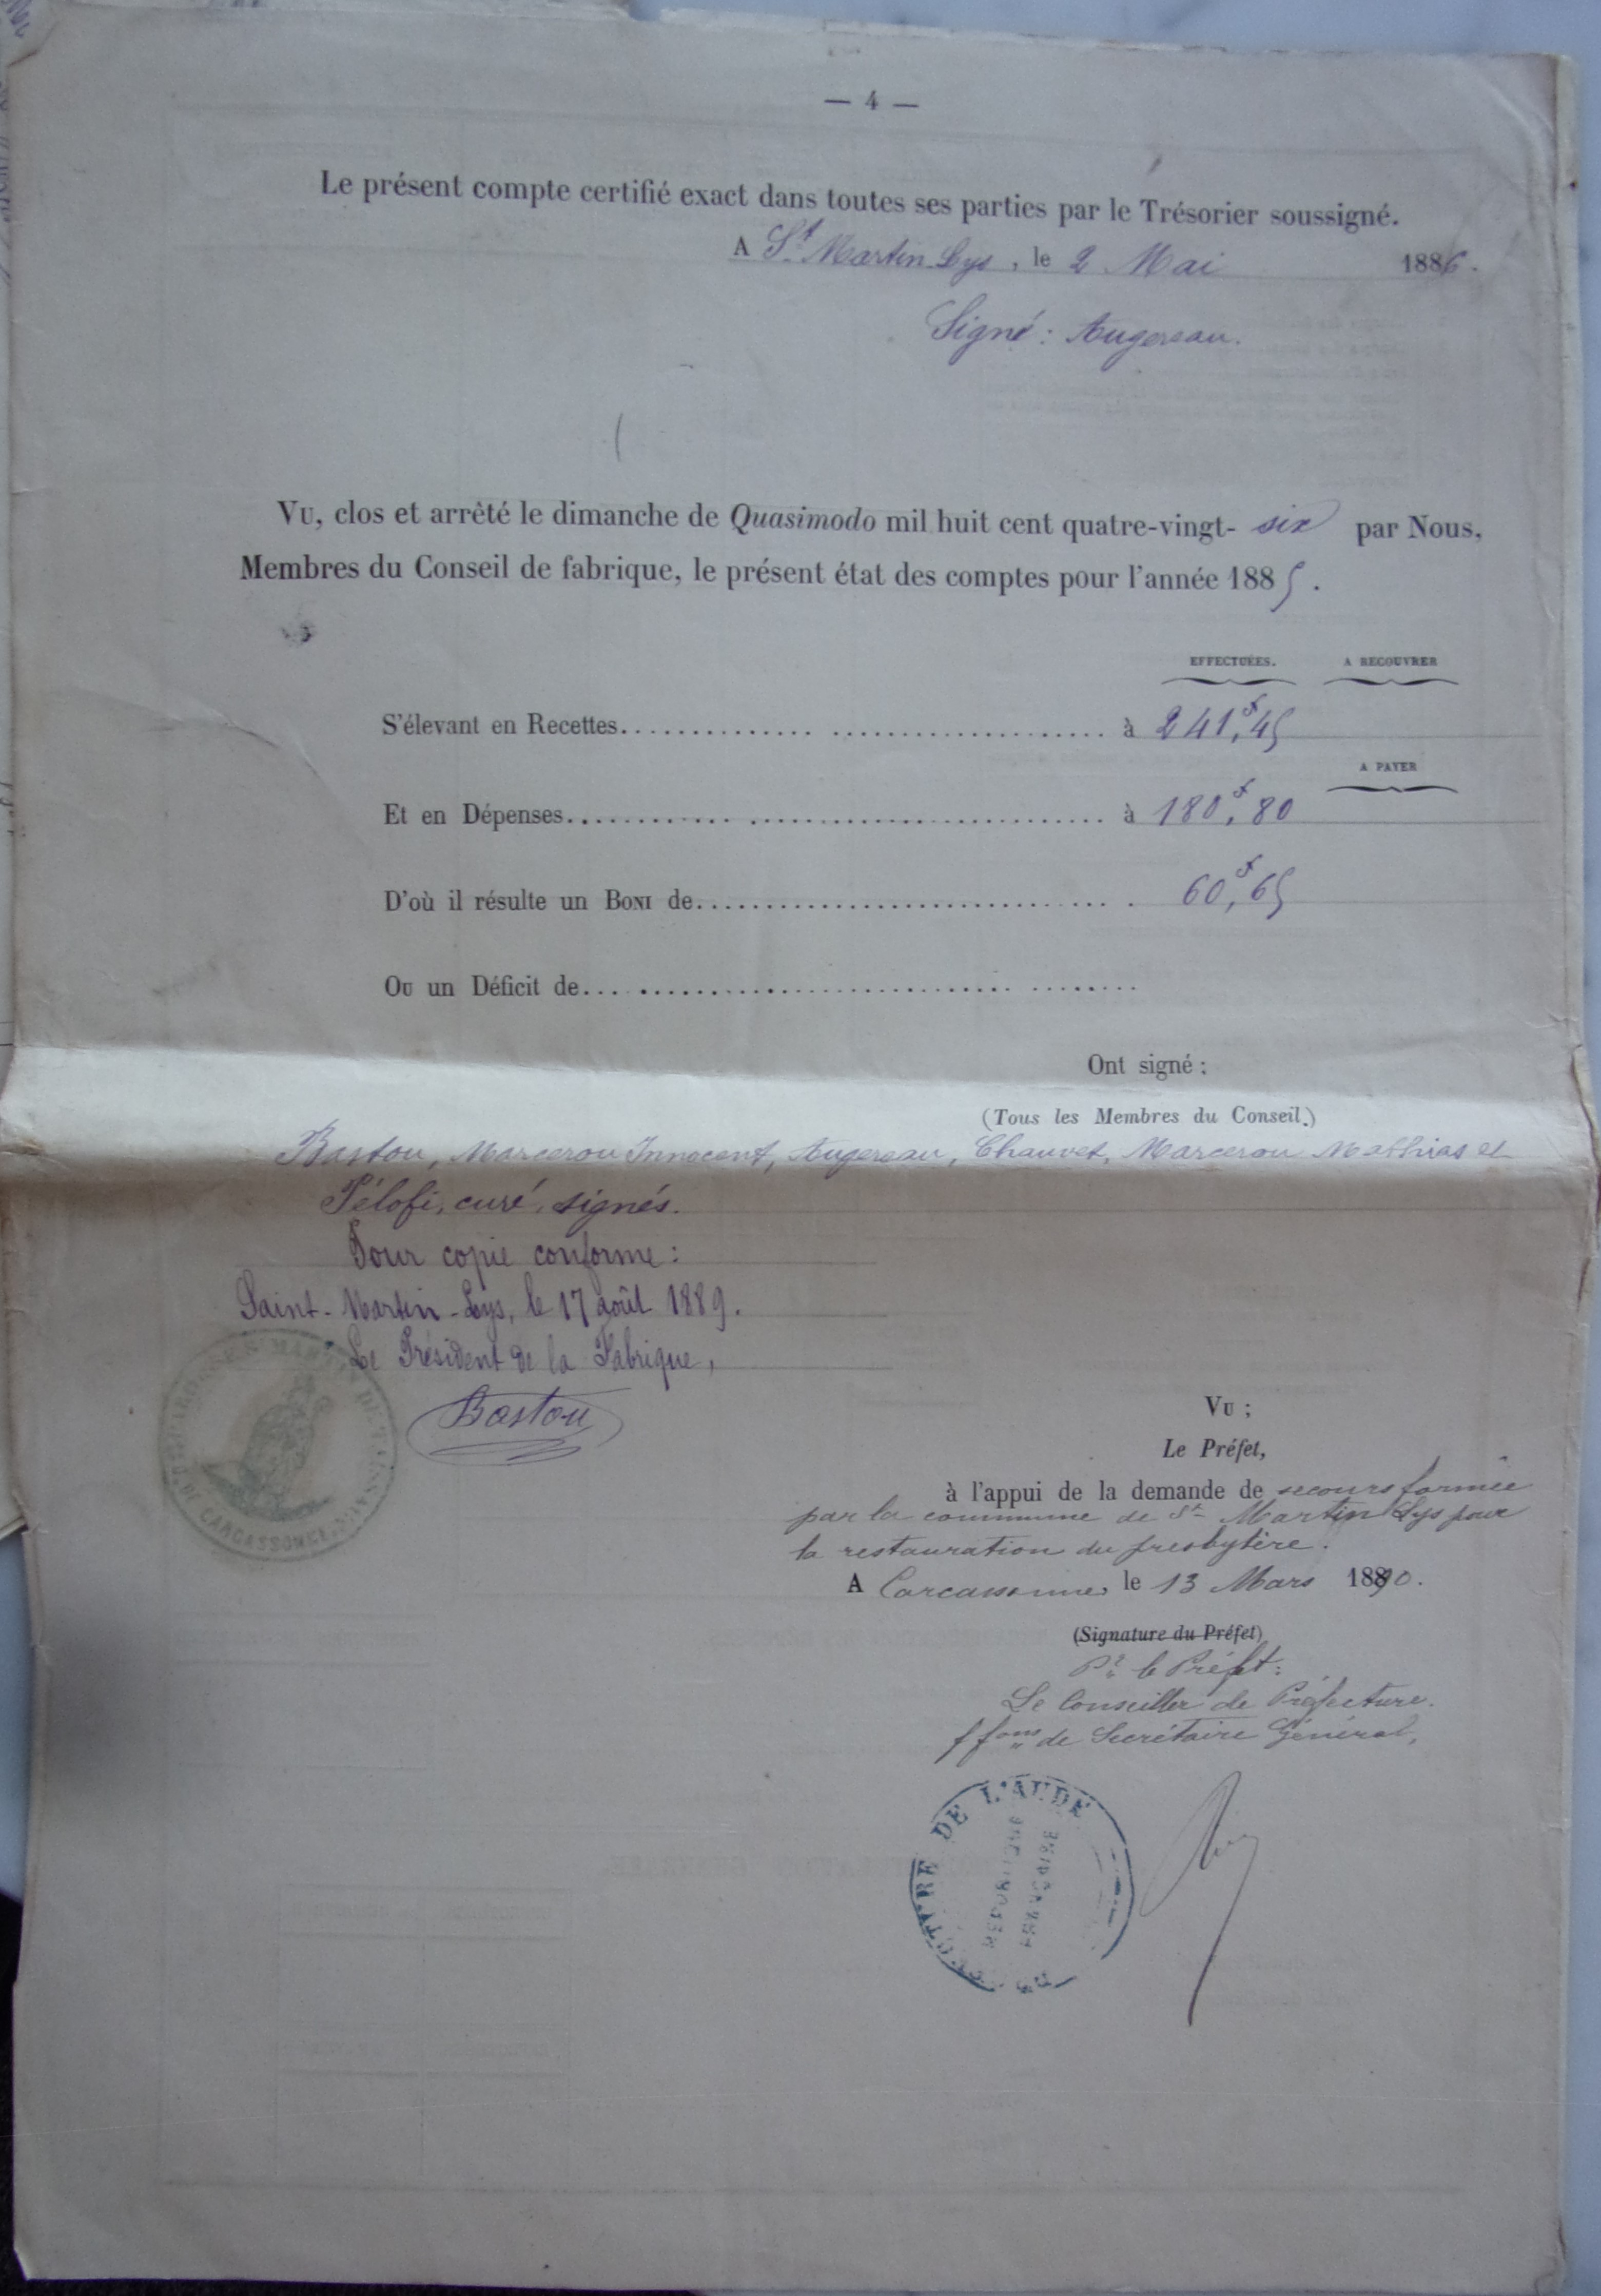 — 4 —
Le présent compte certifié exact dans toutes ses parties par le Trésorier soussigné.
A St Martin Lys, le 2 Mai 1886.
Signé: Augereau.
Vu, clos et arrêté le dimanche de Quasimodo mil huit cent quatre-vingt- six par Nous,
Membres du Conseil de fabrique, le présent état des comptes pour l'année 1885.
EFFECTUÉES. A RECOUVRER
S'élevant en Recettes.................................... à 241f,45
A PAYER
Et en Dépenses.................................... à 180f,80
D'où il résulte un Boni de.................................... 60f,65
Ou un Déficit de....................................
Ont signé :
(Tous les Membres du Conseil.)
Bastou, Marcerou Innocent, Augereau, Chauvet, Marcerou Mathias et
Pélofi, curé, signés.
Pour copie conforme:
Saint-Martin-Lys, le 17 août 1889.
Le Président de la Fabrique,
Bastou
DE CARCASSONNE
Vu ;
Le Préfet,
à l'appui de la demande de secours formée
par la commune de St Martin Lys pour
la restauration du presbytère.
A Carcassonne, le 13 Mars 1890.
(Signature du Préfet)
Pr le Préfet:
Le Conseiller de Préfecture.
ffons de Secrétaire Général,
PRÉFECTURE DE L'AUDE
RÉPUBLIQUE
FRANÇAISE